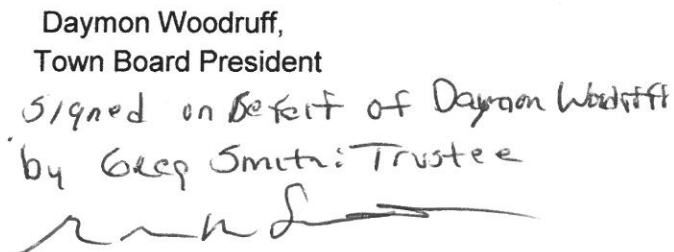 Daymon Woodruff,
Town Board President
Signed on Behalf of Daymon Woodruff
by Greg Smith: Trustee